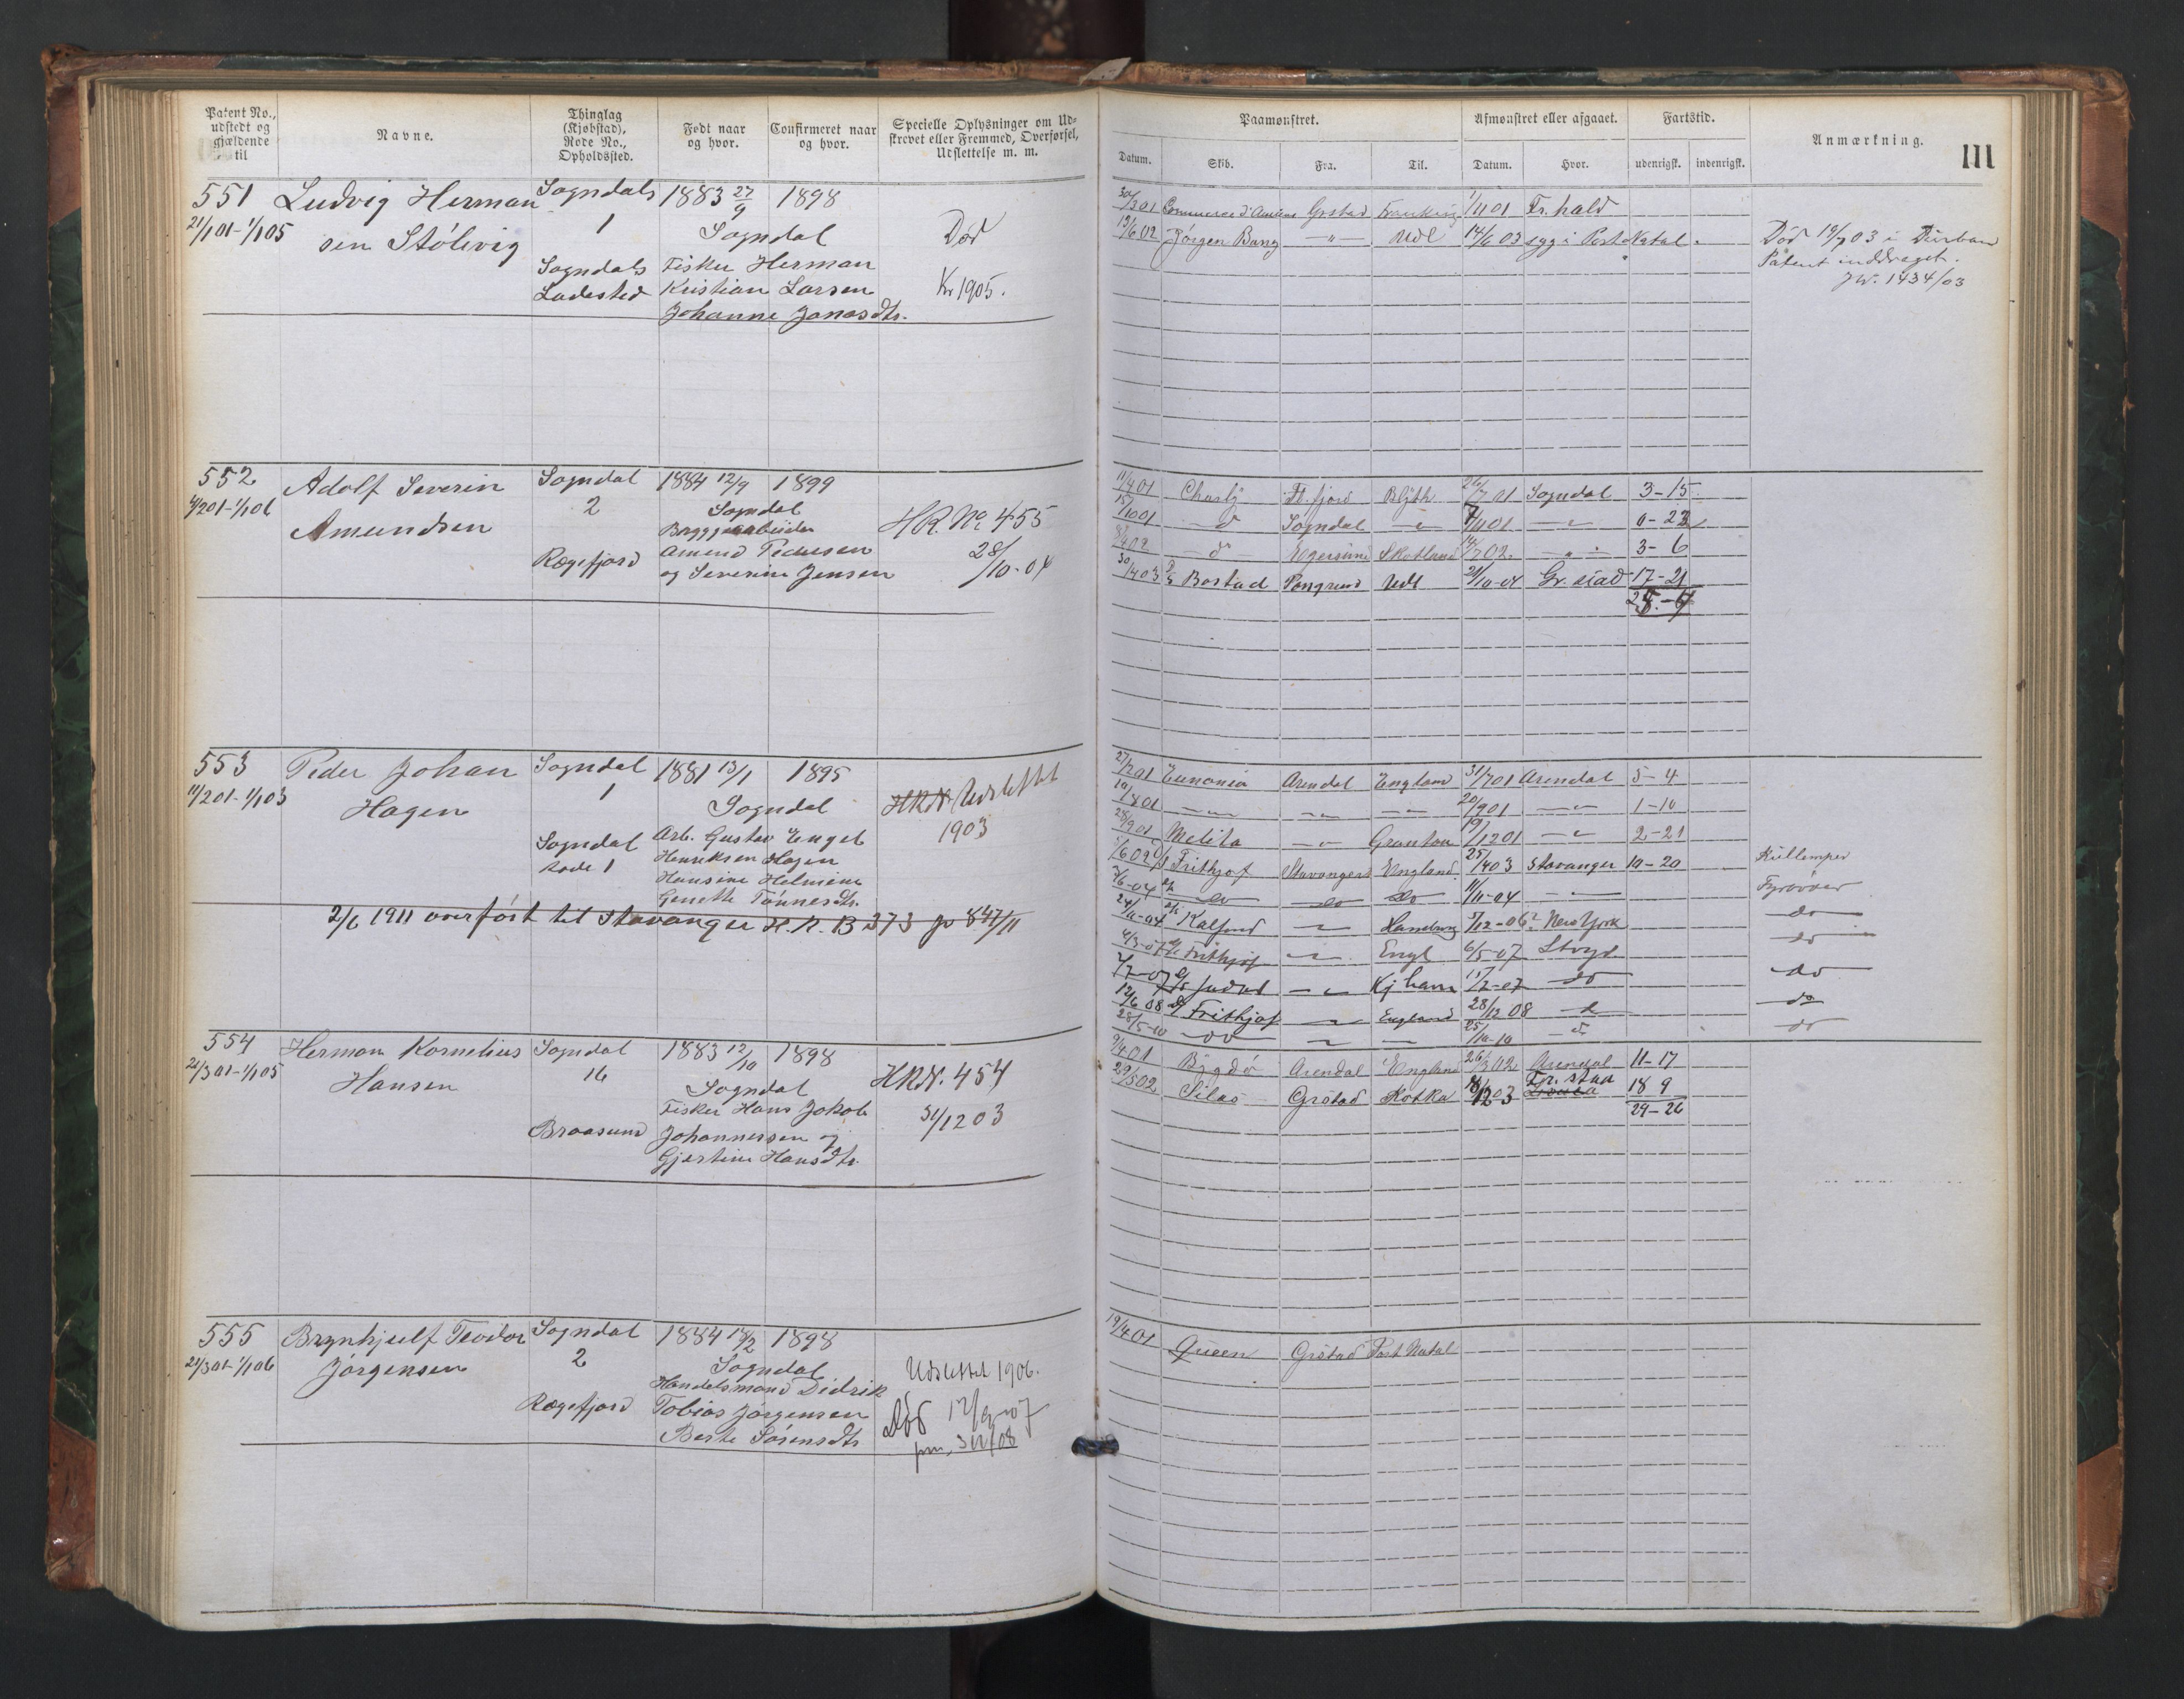 Patent No., udstedt og gjældende til
Navne.
Thinglag (Kjøbstad), Rode No., Opholdssted.
Født naar og hvor.
Confirmeret naar og hvor.
Specielle Oplysninger om Udskrevet eller Fremmed, Overførsel, Udslettelse m. m.
551 Ludvig Herman Sogndals 1883 27/9 1898
21/1 01-1/1 05 sen Stölevig 1 Sogndal Död
Sogndals Fisker Herman
Ladested Kristian Larsen Kr 1905.
Johanne Jonasdtr.
552 Adolf Severin Sogndal 1884 12/9 1899
4/2 01-1/1 06 Amundsen 2 Sogndal HR. No 455
Bryggearbeider
Rægefjord Amund Pedersen 28/10-04
og Severine Jensen
553 Peder Johan Sogndal 1881 13/1 1895
11/2 01-1/1 03 Hagen 1 Sogndal HRN Udslettet
Sogndal Arb. Gustav Engel 1903
Rode 1 Henriksen Hagen
Hansine Helmine
Genette Tönnesdtr.
2/6 1911 overfört til Stavanger H.R. B 373 jr 847/11
554 Herman Kornelius Sogndal 1883 12/10 1898
21/3 01-1/1 05 Hansen 16 Sogndal HRN. 454
Fisker Hans Jakob 31/12 03
Braasund Johannessen og
Gjertine Hansdtr.
555 Brynhjulf Teodor Sogndal 1884 18/2 1898
21/3 01-1/1 06 Jörgensen 2 Sogndal Udslettet 1906.
Handelsmand Didrik
Rægefjord Tobias Jörgensen Död
Berte Sörensdtr.
Paamønstret.
Afmønstret eller afgaaet.
Fartstid.
Anmærkning.
111
Datum.
Skib.
Fra.
Til.
Datum.
Hvor.
udenrigsk.
indenrigsk.
30/3 01 Grstad 1/11 01 Fr.hald
12/6 02 Jörgen Bang — " — Udl 14/6 03 syg i Port Natal. Död 19/7 03 i Durban
Patent inddraget.
JW. 1434/03
11/4 01 Fl.fjord Blyth 26/7 01 Sogndal 3-15
15/10 01 do Sogndal — " — 7/11 01 — " — 0-22
8/4 02 do Egersund Skotland 14/7 02. — " — 3-6
30/4 03 Bostad Udl 21/10-04 Gr.stad 17-21
27/2 01 Eunomia Arendal England 31/7 01 Arendal 5-4
10/8 01 — " — — " — — " — 20/9 01 — " — 1-10
28/9 01 Melita — " — Granton 19/12 01 — " — 2-21
Frithjof Stavanger England 25/4 03 Stavanger 10-20 Kullemper
do do do 11/11-04 — " — Fyrböder
24/11-04 — " — Hamburg 7/12-06 New York do
4/3-07 Frithjof — " — Engl 6/5-07 Stvgr do
7/7-07 — " — Kjhavn do do
12/6 08 Frithjof — " — England 28/12 08 do do
28/5-10 do — " — — " — 25/10-10 do do
9/4 01 Bygdö Arendal England 26/3 02 Arendal 11-17
29/5 02 Silas Grstad Kotka Fr.stad 18 9
29-26
19/4 01 Queen Grstad Port Natal